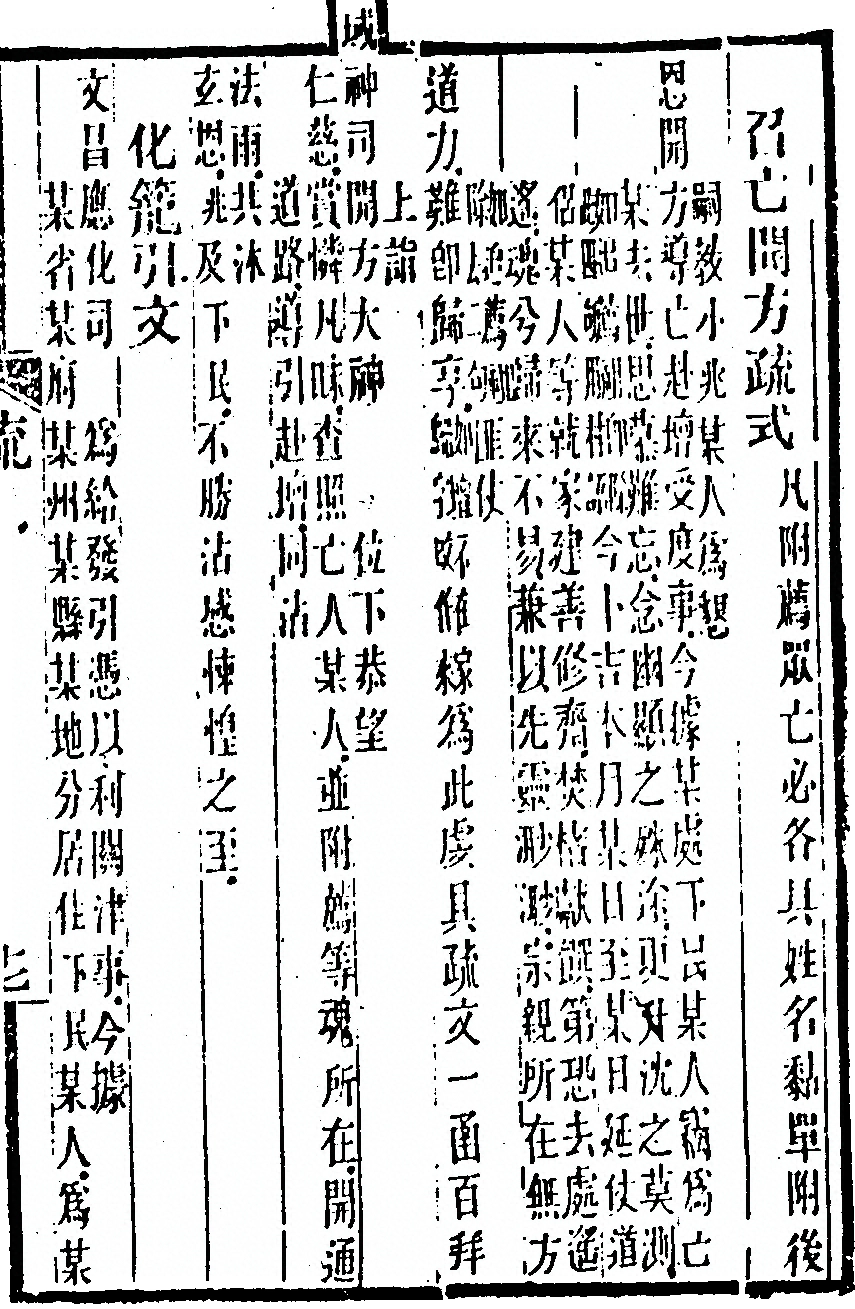 召亡開方疏式　凡附薦眾亡必各具姓名黏單附後
嗣教小兆某人爲懇
恩開方導亡赴壇受度事今據某處下民某人痛爲亡
某去世思慕難忘念幽顯之殊途更升沈之莫測
今卜吉本月某日至某日延仗道
侶某人等就家建善修齋焚楮獻饌第恐去處遙
遙魂兮歸來不易兼以先靈渺渺宗親所在無方
除
匪仗
道力難卽歸享
爲此虔具疏文一函百拜
上詣
城神司開方大神　位下恭望
仁慈賞憐凡味查照亡人某人並附薦等魂所在開通
道路導引赴壇同沾
法雨共沐
玄恩兆及下民不勝沾感悚惶之至
化籠引文
文昌應化司　爲給發引憑以利關津事今據
某省某府某州某縣某地分居住下民某人爲某